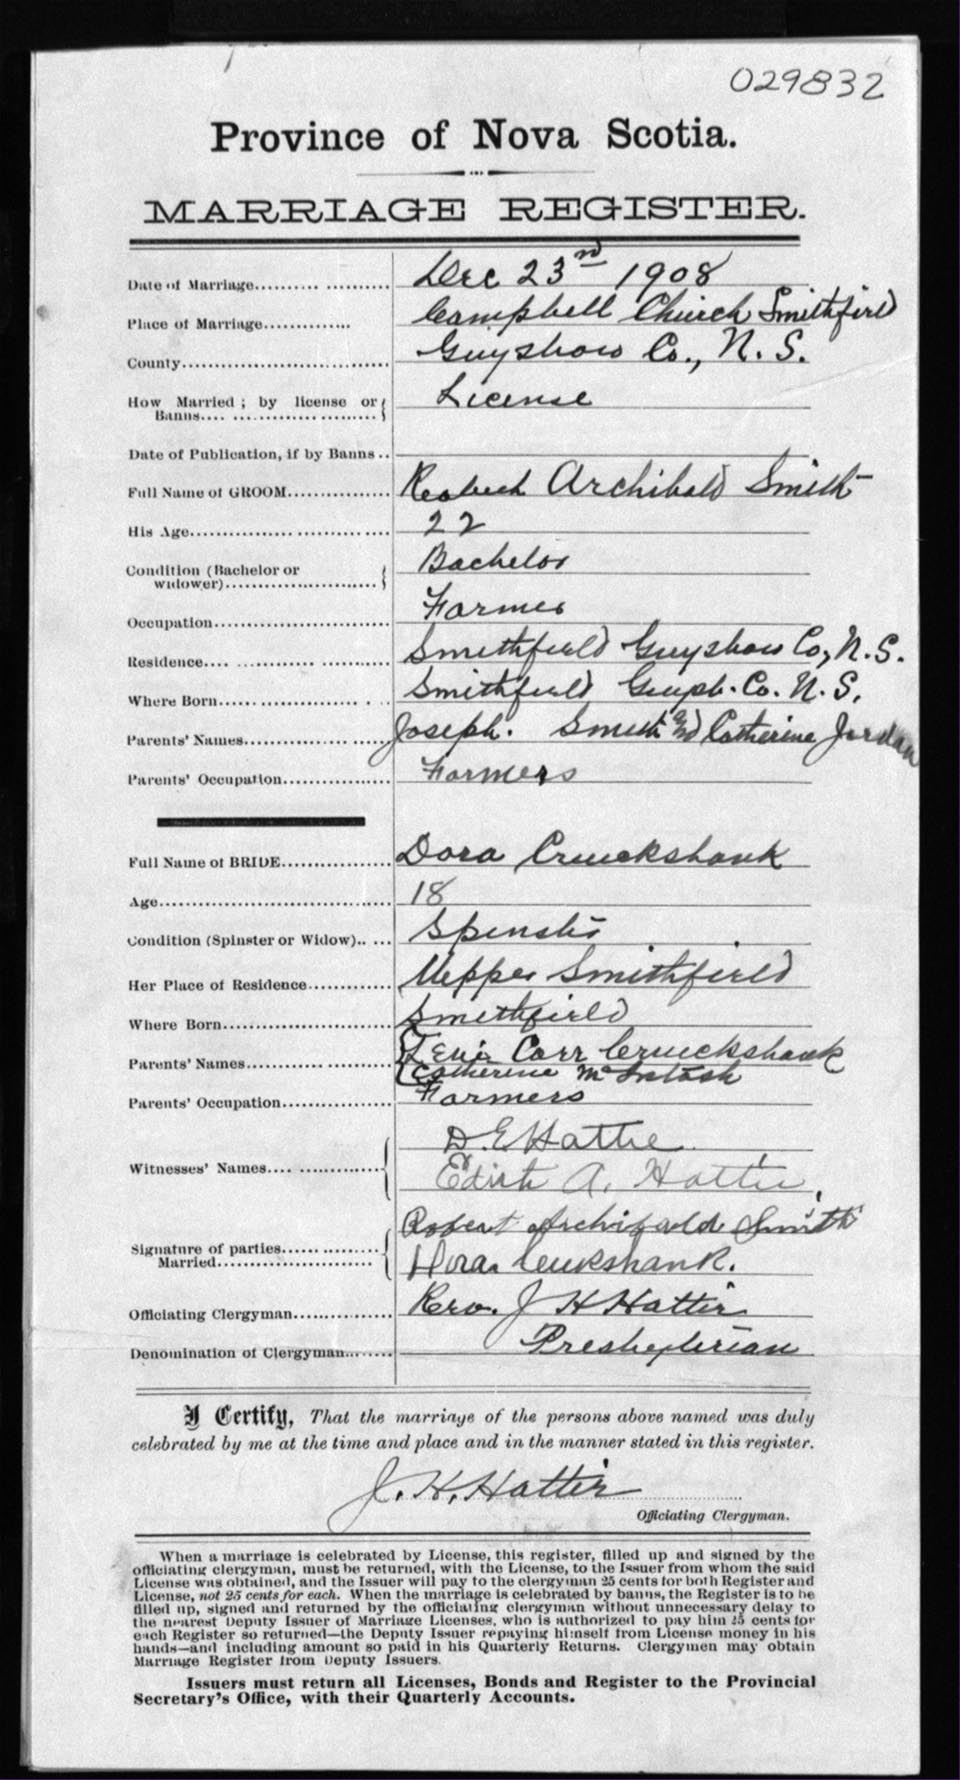 029832
Province of Nova Scotia.
MARRIAGE REGISTER.
Date of Marriage.......... Dec 23rd 1908
Place of Marriage.......... Campbell Church Smithfield
County.......... Guysboro Co., N. S.
How Married ; by license or Banns.......... License
Date of Publication, if by Banns ..
Full Name of GROOM.......... Robert Archibald Smith
His Age.......... 22
Condition (Bachelor or widower).......... Bachelor
Occupation.......... Farmer
Residence.......... Smithfield Guysboro Co, N. S.
Where Born.......... Smithfield Guysb. Co. N. S.
Parents' Names.......... Joseph. Smith and Catherine Jordan
Parents' Occupation.......... Farmers
Full Name of BRIDE.......... Dora Cruickshank
Age.......... 18
Condition (Spinster or Widow).. ... Spinster
Her Place of Residence.......... Upper Smithfield
Where Born.......... Smithfield
Parents' Names.......... Carr Cruickshank
Catherine McIntosh
Parents' Occupation.......... Farmers
Witnesses' Names.......... D. E. Hattie
Edith A. Hattie
Signature of parties.......... Robert Archibald Smith
Married.......... Dora Cruikshank.
Officiating Clergyman.......... Rev. J H Hattie
Denomination of Clergyman.......... Presbyterian
I Certify, That the marriage of the persons above named was duly
celebrated by me at the time and place and in the manner stated in this register.
J. H. Hattie
Officiating Clergyman.
When a marriage is celebrated by License, this register, filled up and signed by the
officiating clergyman, must be returned, with the License, to the Issuer from whom the said
License was obtained, and the Issuer will pay to the clergyman 25 cents for both Register and
License, not 25 cents for each. When the marriage is celebrated by banns, the Register is to be
filled up, signed and returned by the officiating clergyman without unnecessary delay to
the nearest Deputy Issuer of Marriage Licenses, who is authorized to pay him 25 cents for
each Register so returned—the Deputy Issuer repaying himself from License money in his
hands—and including amount so paid in his Quarterly Returns. Clergymen may obtain
Marriage Register from Deputy Issuers.
Issuers must return all Licenses, Bonds and Register to the Provincial
Secretary's Office, with their Quarterly Accounts.